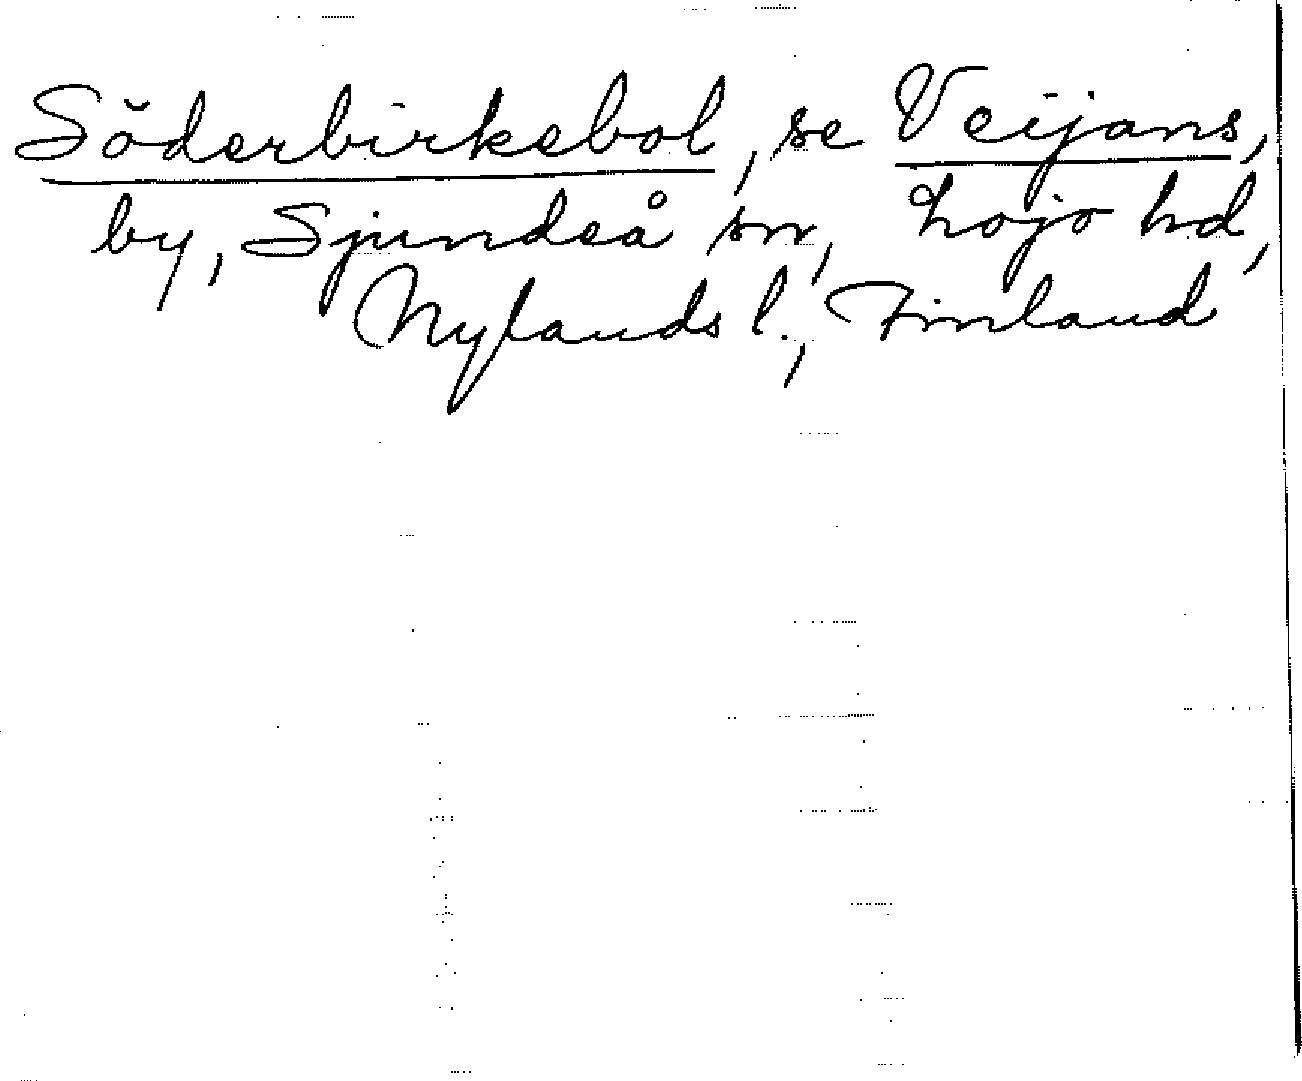 Söderbirkebol, se Veijans,
by, Sjundeå sn, Lojo hd,
Nylands l., Finland